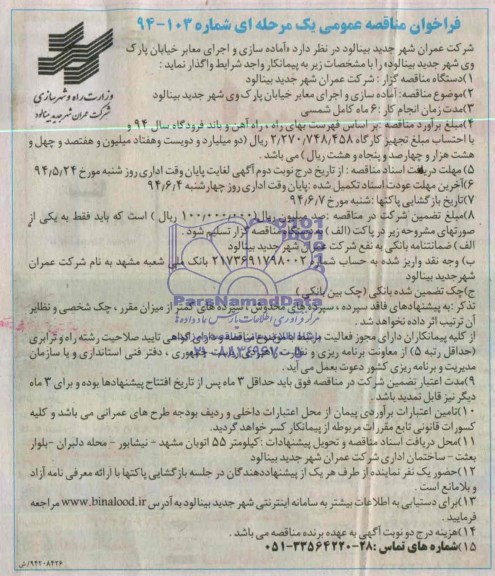 فراخوان مناقصه عمومی یک مرحله ای شماره ۱۰۳-۹۴
وزارت راه و شهرسازی
شرکت عمران شهر جدید بینالود
شرکت عمران شهر جدید بینالود در نظر دارد «آماده سازی و اجرای معابر خیابان پارک
وی شهر جدید بینالود» را با مشخصات زیر به پیمانکار واجد شرایط واگذار نماید :
۱)دستگاه مناقصه گزار : شرکت عمران شهر جدید بینالود
۲)موضوع مناقصه: آماده سازی و اجرای معابر خیابان پارک وی شهر جدید بینالود
۳)مدت زمان انجام کار : ۶ ماه کامل شمسی
۴)مبلغ برآورد مناقصه :بر اساس فهرست بهای راه ، راه آهن و باند فرودگاه سال ۹۴ و
با احتساب مبلغ تجهیز کارگاه ۲/۲۷۰/۷۴۸/۴۵۸ ریال (دو میلیارد و دویست وهفتاد میلیون و هفتصد و چهل و
هشت هزار و چهارصد و پنجاه و هشت ریال ) می باشد .
۵) مهلت دریافت اسناد مناقصه : از تاریخ درج نوبت دوم آگهی لغایت پایان وقت اداری روز شنبه مورخ ۹۴/۵/۲۴
۶)آخرین مهلت عودت اسناد تکمیل شده :پایان وقت اداری روز چهارشنبه ۹۴/۶/۴
۷)تاریخ بازگشایی پاکتها :شنبه مورخ ۹۴/۶/۷
۸)مبلغ تضمین شرکت در مناقصه :صد میلیون ریال(۱۰۰/۰۰۰/۰۰۰ ریال ) است که باید فقط به یکی از
صورتهای مشروحه زیر در پاکت (الف) به دستگاه مناقصه گزار تسلیم شود .
الف )ضمانتنامه بانکی به نفع شرکت عمران شهر جدید بینالود
ب) وجه نقد واریز شده به حساب شماره ۲۱۷۳۶۹۱۷۹۸۰۰۲ بانک ملی شعبه مشهد به نام شرکت عمران
شهر جدید بینالود
ج)چک تضمین شده بانکی (چک بین بانکی)
تذکر :به پیشنهادهای فاقد سپرده ، سپرده های مخدوش ، سپرده های کمتر از میزان مقرر ، چک شخصی و نظایر
آن ترتیب اثر داده نخواهد شد .
از کلیه پیمانکاران دارای مجوز فعالیت مرتبط با موضوع مناقصه و دارای گواهی تایید صلاحیت رشته راه و ترابری
(حداقل رتبه ۵) از معاونت برنامه ریزی و نظارت راهبردی ریاست جمهوری ، دفتر فنی استانداری و یا سازمان
مدیریت و برنامه ریزی کشور دعوت بعمل می آید .
۹)مدت اعتبار تضمین شرکت در مناقصه فوق باید حداقل ۳ ماه پس از تاریخ افتتاح پیشنهادها بوده و برای ۳ ماه
دیگر نیز قابل تمدید باشد .
۱۰)تامین اعتبارات برآوردی پیمان از محل اعتبارات داخلی و ردیف بودجه طرح های عمرانی می باشد و کلیه
کسورات قانونی تابع مقررات مربوطه از پیمانکار کسر خواهد گردید.
۱۱)محل دریافت اسناد مناقصه و تحویل پیشنهادات :کیلومتر ۵۵ اتوبان مشهد - نیشابور - محله دلبران -بلوار
بعثت - ساختمان اداری شرکت عمران شهر جدید بینالود
۱۲)حضور یک نفر نماینده از طرف هر یک از پیشنهاددهندگان در جلسه بازگشایی پاکتها با ارائه معرفی نامه آزاد
و بلامانع است .
۱۳)برای دستیابی به اطلاعات بیشتر به سامانه اینترنتی شهر جدید بینالود به آدرس www.binalood.ir مراجعه
فرمایید .
۱۴)هزینه درج دو نوبت آگهی به عهده برنده مناقصه می باشد .
۱۵)شماره های تماس :۲۸-۳۳۵۶۴۲۲۰-۰۵۱
۹۴۲۰۸۴۲۶/ش
ParsNamadData
مرکز فرآوری اطلاعات پارس نماد داده ها
۰۲۱-۸۸۳۴۹۶۷۰-۵